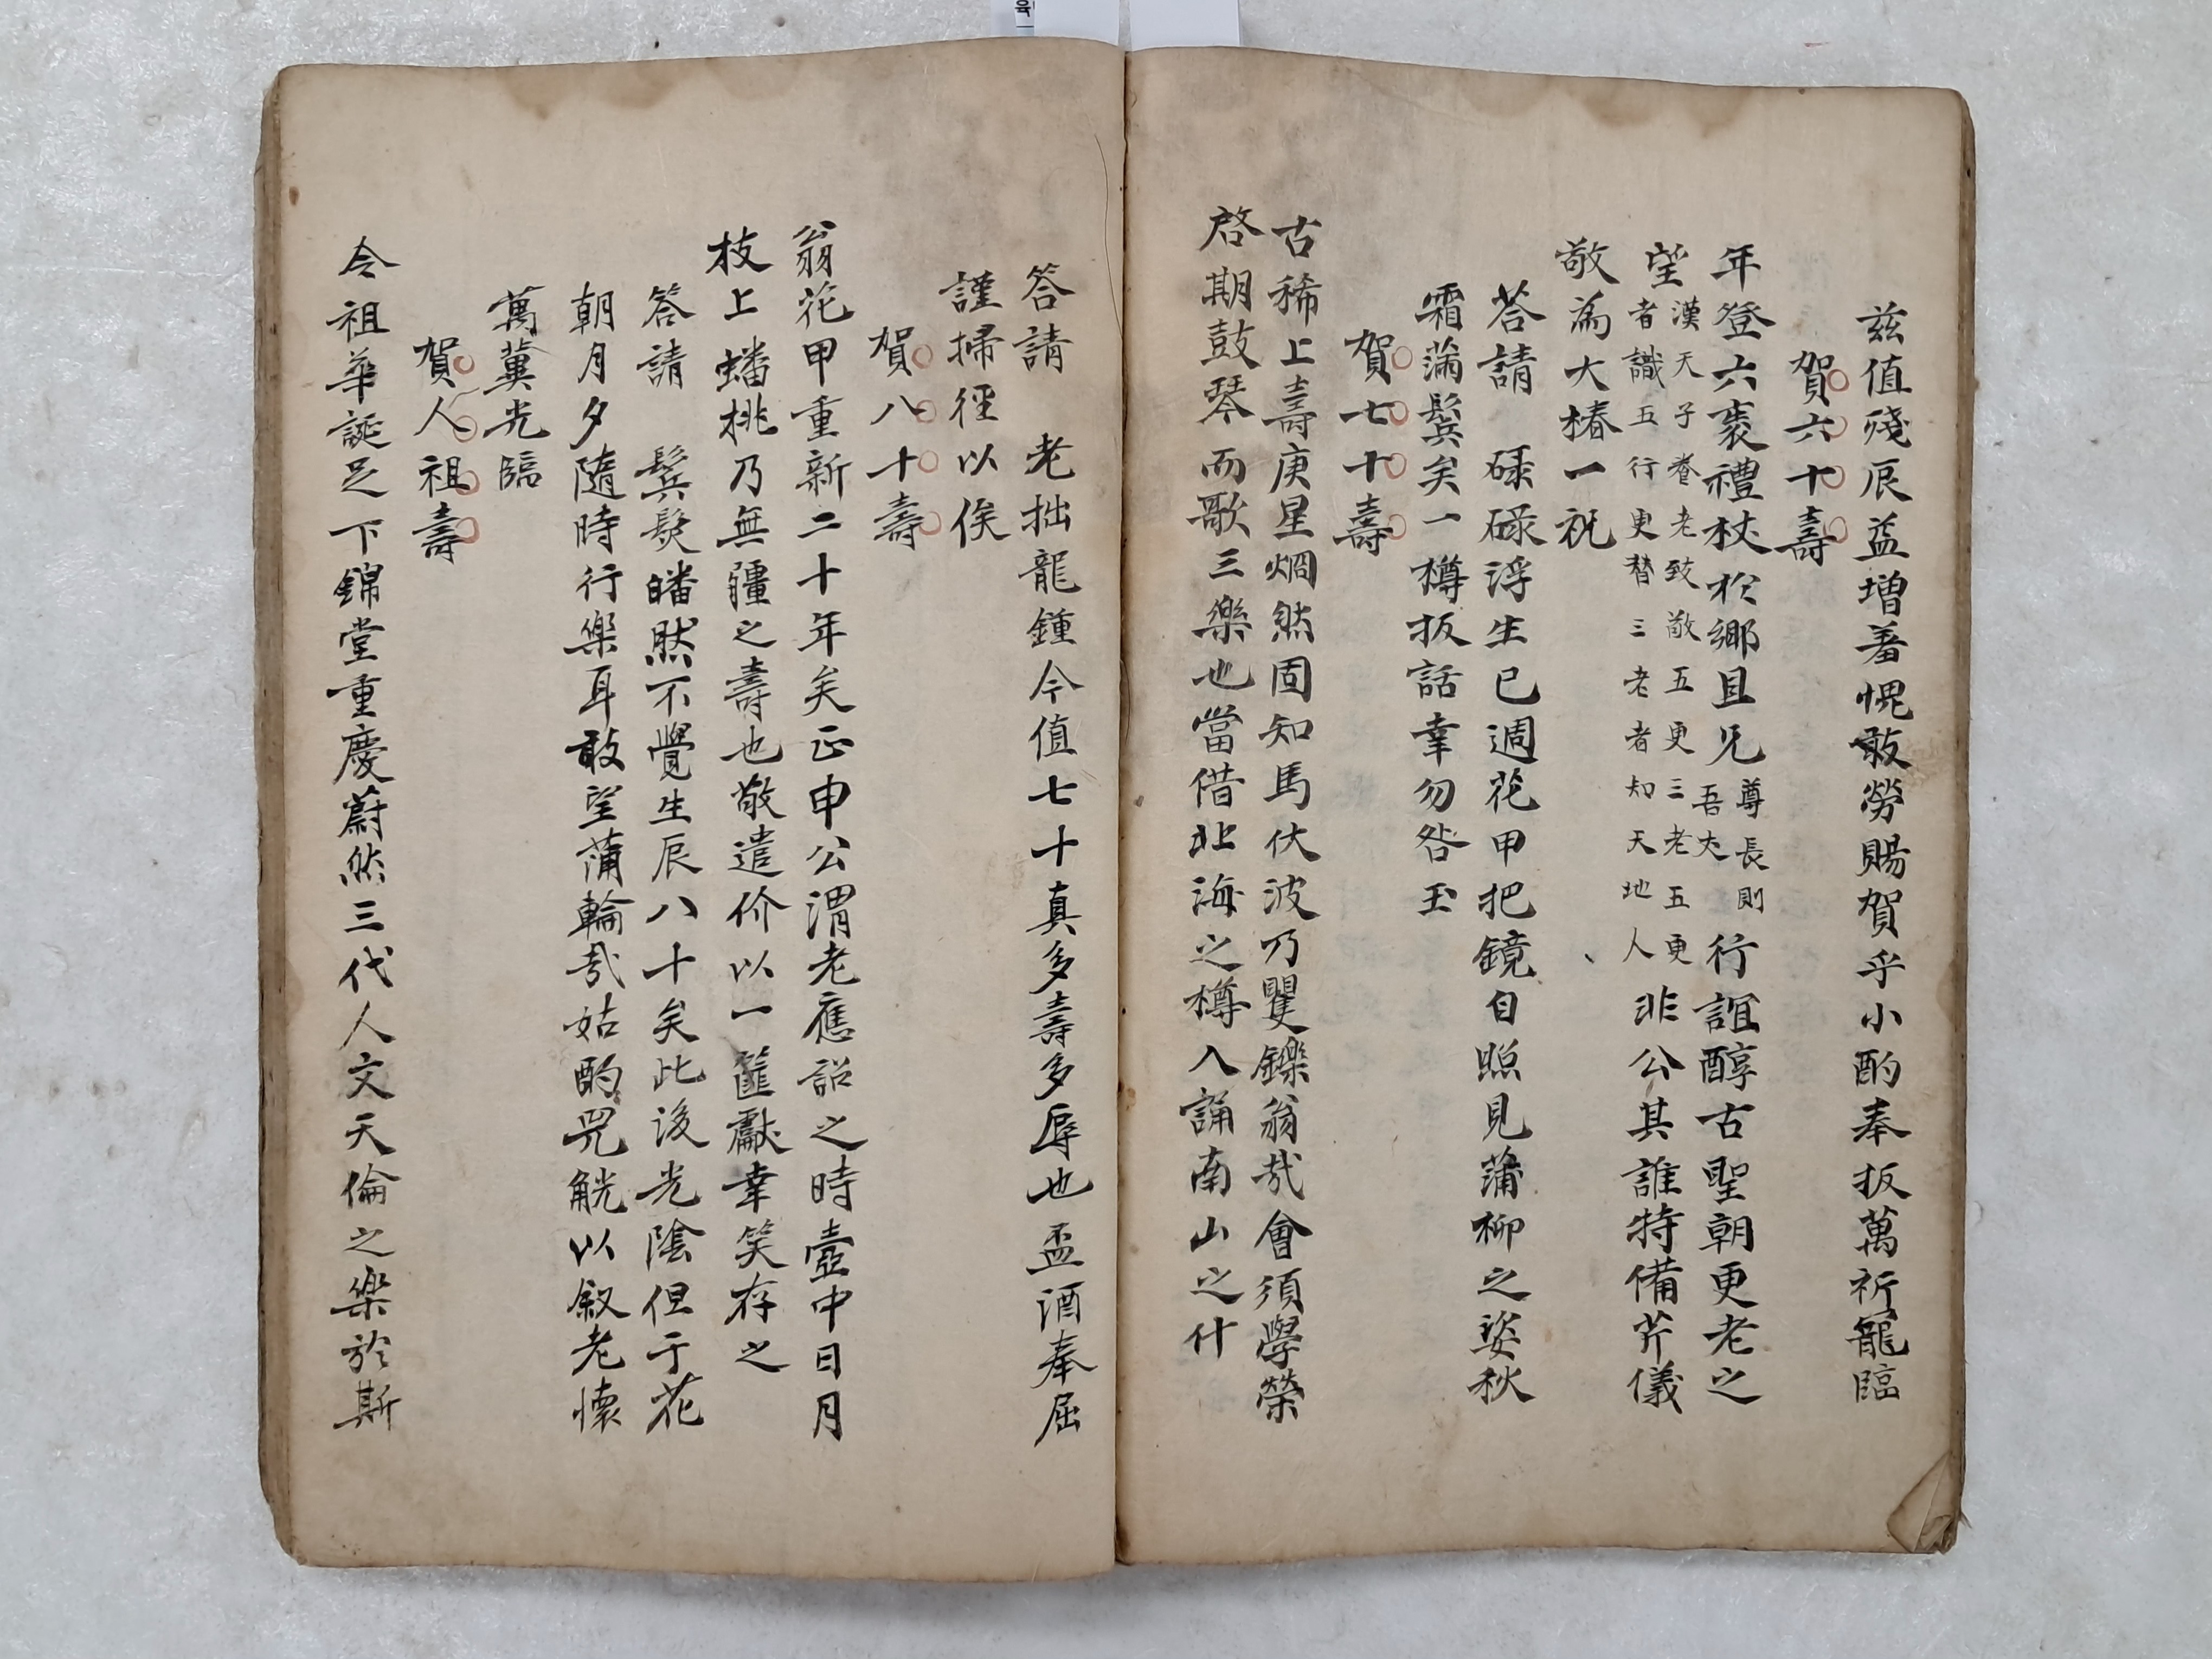 兹值殘辰益增羞愧敢勞賜賀乎小酌奉扳萬祈寵臨
賀六十壽
年登六袠禮杖於鄉且兄尊長則吾丈行誼醇古聖朝更老之
望漢天子養老致敬五更三老五更者識五行更替三老者知天地人非公其誰特備芹儀
敬為大椿一祝
荅請 碌碌浮生已週花甲把鏡自照見蒲柳之姿秋
霜滿鬂矣一樽扳話幸勿咎玉
賀七十壽
古稀上壽庚星烱然固知馬伏波乃矍鑠翁哉會須學榮
啓期鼓琴而歌三樂也當借北海之樽入誦南山之什
答請 老拙龍鍾今值七十真多壽多辱也盃酒奉屈
謹掃徑以俟
賀八十壽
翁花甲重新二十年矣正申公渭老應詔之時壺中日月
枝上蟠桃乃無疆之壽也敬遣价以一篚獻幸笑存之
答請 鬂髮皤然不覺生辰八十矣此後光陰但于花
朝月夕隨時行樂耳敢望蒲輪哉姑酌兕觥以叙老懷
萬冀光臨
賀人祖壽
令祖華誕足下錦堂重慶蔚然三代人文天倫之樂於斯
육